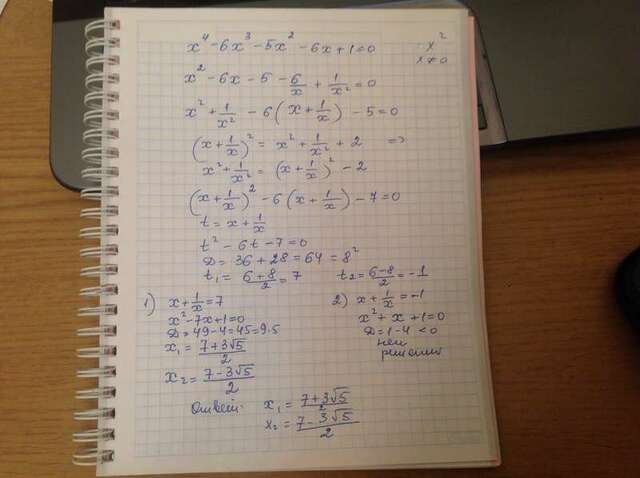 x⁴ - 6x³ - 5x² - 6x + 1 = 0
: x²
x ≠ 0
x² - 6x - 5 - 6/x + 1/x² = 0
x² + 1/x² - 6(x + 1/x) - 5 = 0
(x + 1/x)² = x² + 1/x² + 2 =>
x² + 1/x² = (x + 1/x)² - 2
(x + 1/x)² - 6(x + 1/x) - 7 = 0
t = x + 1/x
t² - 6t - 7 = 0
D = 36 + 28 = 64 = 8²
t₁ = (6+8)/2 = 7
t₂ = (6-8)/2 = -1
1) x + 1/x = 7
x² - 7x + 1 = 0
D = 49 - 4 = 45 = 9·5
x₁ = (7+3√5)/2
x₂ = (7-3√5)/2
2) x + 1/x = -1
x² + x + 1 = 0
D = 1 - 4 < 0
нет
решения
Ответ: x₁ = (7+3√5)/2
x₂ = (7-3√5)/2